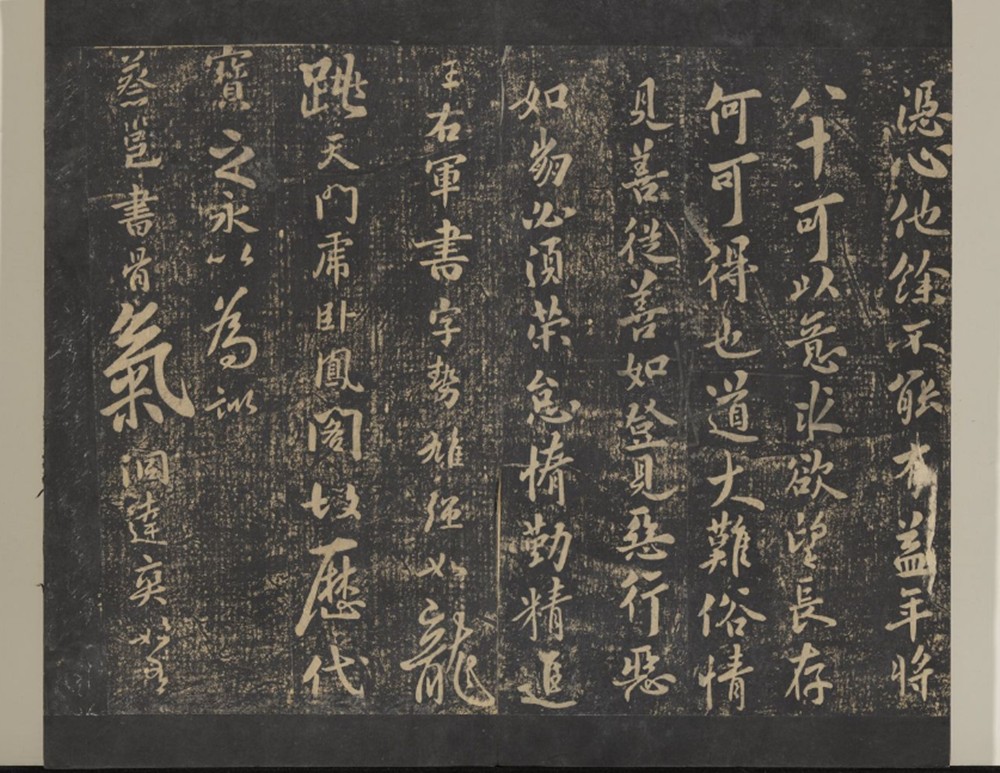 憑心他餘不能有益年將
八十可以意求欲望長存
何可得也道大難俗情
見善從善如登見惡行惡
如崩必須策怠惰勤精進
王右軍書字勢雄强如龍
跳天門虎臥鳳閣故歷代
寶之永以為訓
蔡邕書骨氣洞達爽如有